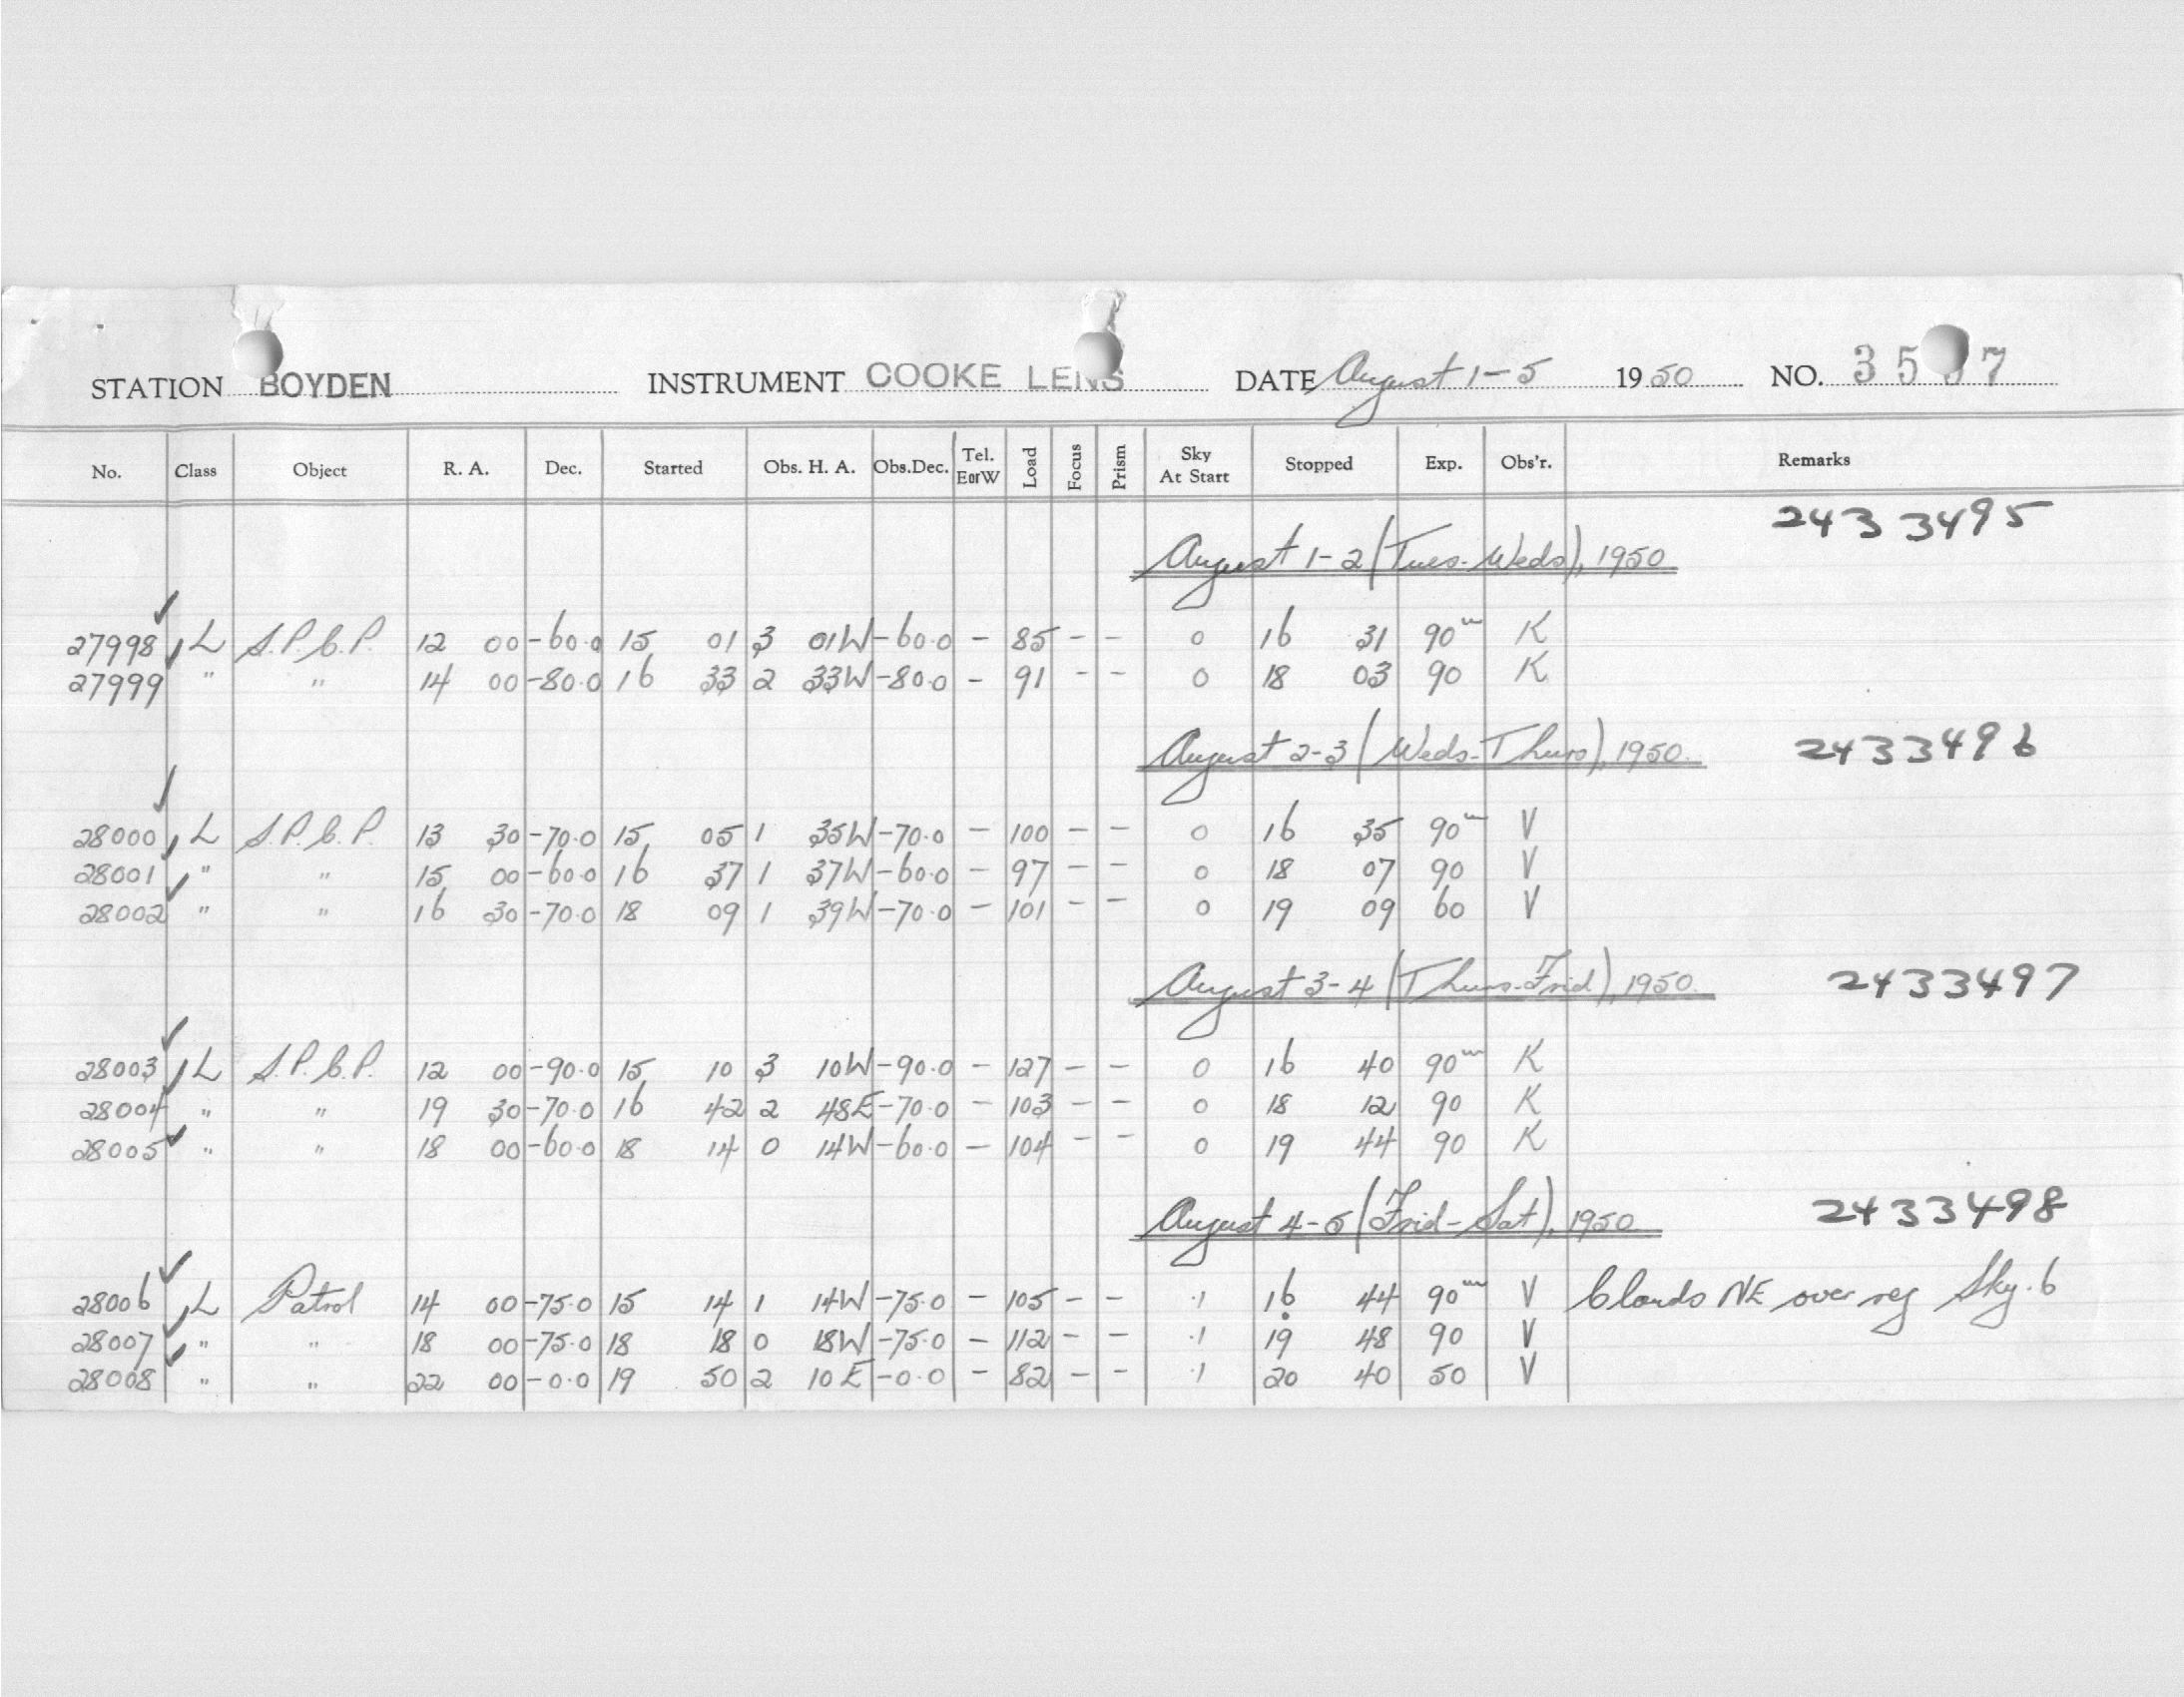 STATION BOYDEN INSTRUMENT COOKE LENS DATE August 1-5 1950 NO. 35 7
No. Class Object R. A. Dec. Started Obs. H. A. Obs.Dec. Tel. EorW Load Focus Prism Sky At Start Stopped Exp. Obs'r. Remarks
2433495
August 1-2 (Tues-Weds), 1950
27998 L S.P.C.P. 12 00 -60.0 15 01 3 01W -60.0 - 85 - - 0 16 31 90m K
27999 " " 14 00 -80.0 16 33 2 33W -80.0 - 91 - - 0 18 03 90 K
August 2-3 (Weds-Thurs), 1950. 2433496
28000 L S.P.C.P. 13 30 -70.0 15 05 1 35W -70.0 - 100 - - 0 16 35 90m V
28001 " " 15 00 -60.0 16 37 1 37W -60.0 - 97 - - 0 18 07 90 V
28002 " " 16 30 -70.0 18 09 1 39W -70.0 - 101 - - 0 19 09 60 V
August 3-4 (Thurs-Frid), 1950. 2433497
28003 L S.P.C.P. 12 00 -90.0 15 10 3 10W -90.0 - 127 - - 0 16 40 90m K
28004 " " 19 30 -70.0 16 42 2 48E -70.0 - 103 - - 0 18 12 90 K
28005 " " 18 00 -60.0 18 14 0 14W -60.0 - 104 - - 0 19 44 90 K
August 4-5 (Frid-Sat), 1950 2433498
28006 L Patrol 14 00 -75.0 15 14 1 14W -75.0 - 105 - - .1 16 44 90m V Clouds NE over reg Sky .6
28007 " " 18 00 -75.0 18 18 0 18W -75.0 - 112 - - .1 19 48 90 V
28008 " " 22 00 -0.0 19 50 2 10E -0.0 - 82 - - .1 20 40 50 V